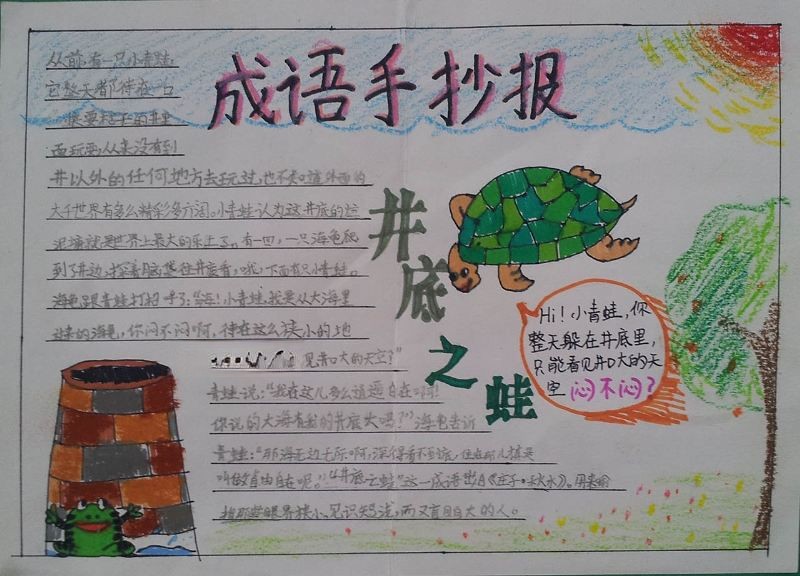 成语手抄报
井底之蛙
从前,有一只小青蛙,
它整天都待在一口
很要好子的井里
面玩耍,从来没有到
井以外的任何地方去玩过,也不知道外面的
大千世界有多么精彩多辽阔。小青蛙认为这井底的烂
泥塘就是世界上最大的乐土了。有一回,一只海龟爬
到了井边,探着脑袋往井底看,哦,下面有只小青蛙。
海龟跟青蛙打招呼了:“嗨!小青蛙,我是从大海里
来的海龟,你闷不闷啊,待在这么狭小的地
见井口大的天空”
青蛙说:“我在这儿多么逍遥自在啊!
你说的大海有我的井底大吗?”海龟告诉
青蛙:“那海无边无际啊,深得看不到底,住在那儿才是
叫做自由自在呢。”“井底之蛙”这一成语出自《庄子·秋水》。用来
指那些眼界狭小、见识短浅,而又盲目自大的人。
Hi!小青蛙,你
整天躲在井底里,
只能看见井口大的天
空 闷不闷?